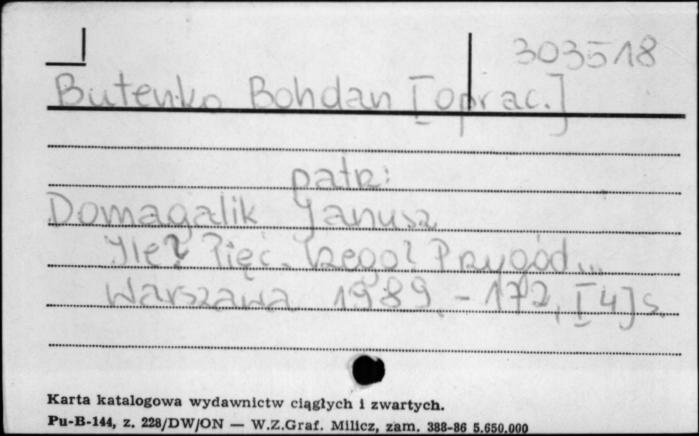 303518
Butenko Bohdan [oprac.]
patrz:
Domagalik Janusz
Ile? Pięć. Czego? Przygód...
Warszawa 1989. - 172, [4] s.
Karta katalogowa wydawnictw ciągłych i zwartych.
Pu-B-144, z. 228/DW/ON — W.Z.Graf. Milicz, zam. 388-86 5.650.000